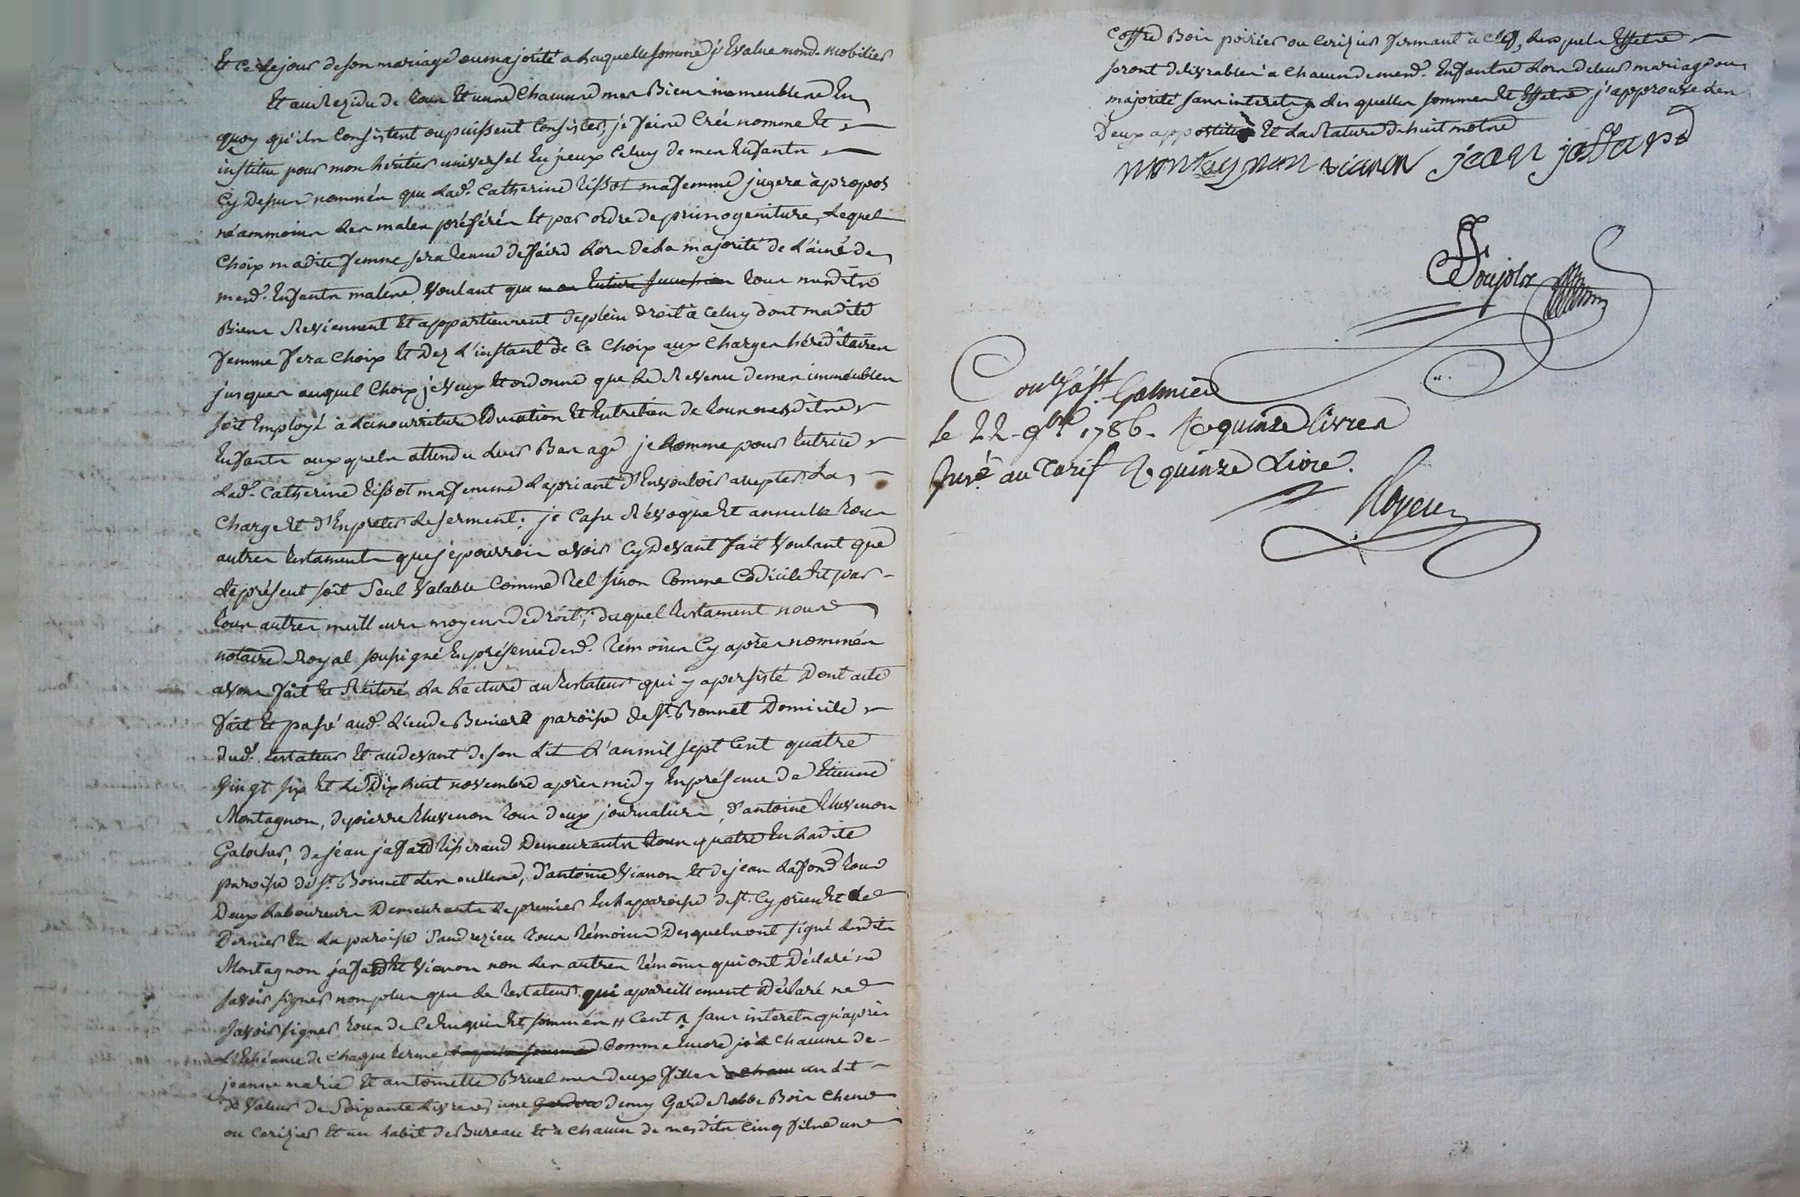 Et ce le jour de son mariage ou majorité a laquelle somme j'Evalue mond. mobilier
Et au Rezidu de tous Et un Chacuns mes Biens immeubles En
quoy qu'ils Consistent ou puissent Consister, je faire Créé nomme Et
institue pour mon heritier universel Et jceux Celuy de mes Enfants
Cy dessus nommés que lad. Catherine Tissot ma femme jugera àpropos
néammoins les males préférés Et par ordre de primogeniture, Lequel
Choix madite femme sera tenue deffaire Lors de la majorité de L'ainé de
mesd. Enfants males, Voulant que tous mesdits
Biens Reviennent Et appartiennent deplein droit à Celuy dont madite
femme fera Choix Et dez L'instant de Ce Choix aux Charges héréditaires
jusques auquel Choix je Veux Et ordonne que Le Revenu demes immeubles
soit Employé à la nourriture Education Et Entretien de tous mesdits
Enfants auxquels attendu Leur Bas age je nomme pour tutrice
Lad. Catherine Tissot ma femme La priant d'En vouloir accepter La
Charge Et d'En preter Le serment; je Casse Révoque Et annulle tous
autres testaments que je pourrois avoir Cy Devant fait Voulant que
Le présent soit Seul Valable Comme tel sinon Comme Codicile Et par
tous autres meilleurs moyens de droit; duquel testament nous
notaire Royal soussigné En présence desd. témoins Cy après nommés
avons fait Et Réiteré La Lecture au testateur qui y a persisté Dont acte
fait Et passé aud. Lieu de paroisse de St. Bonnet Domicile
dud. testateur Et au devant de son Lit L'an mil sept Cent quatre
Vingt six Et Le Dix huit novembre après midy En présence de Etienne
Montagnon, de pierre thevenon tous deux journaliers, d'antoine thevenon
Galocher, de jean jaffard tisserand Demeurants tous quatre En Ladite
paroisse de St. Bonnet Les oulles, d'antoine Vianon Et de jean Laffond tous
Deux Laboureurs Demeurants Le premier En La paroisse de St. Cyprien Et Le
Dernier En La paroisse d'andrezieu tous témoins Desquels ont signé Lesdits
Montagnon jaffard Et Vianon non Les autres témoins qui ont Déclaré ne
savoir signer non plus que Le testateur qui a pareillement Déclaré ne
savoir signer tous de Ce Enquis Et sommés # Cent sans interets qu'après
L'Echéance de chaque terme Comme Encore à chacune de
jeanne marie Et antoinette Bruel mes deux filles un Lit
de Valeur de Soixante Livres, une demy Garde Robbe Bois Chene
ou Cerizier Et un habit de Bureau Et à Chacun de mesdits Cinq fils une
Coffre Bois poirier ou Cerizier fermant à Clef, Lesquels Effets
seront delivrables à Chacun de mesd. Enfants Lors de leur mariage ou
majorité sans interets des quelles sommes Et Effets j'approuve Les
Deux appostilles Et La Rature de huit mots
montagnon vianon jean jaffard
Soujolz
Coulé à St. Galmier
le 22 9bre 1786. R quinze livres
Insé au tarif R quinze Livre.
Royer